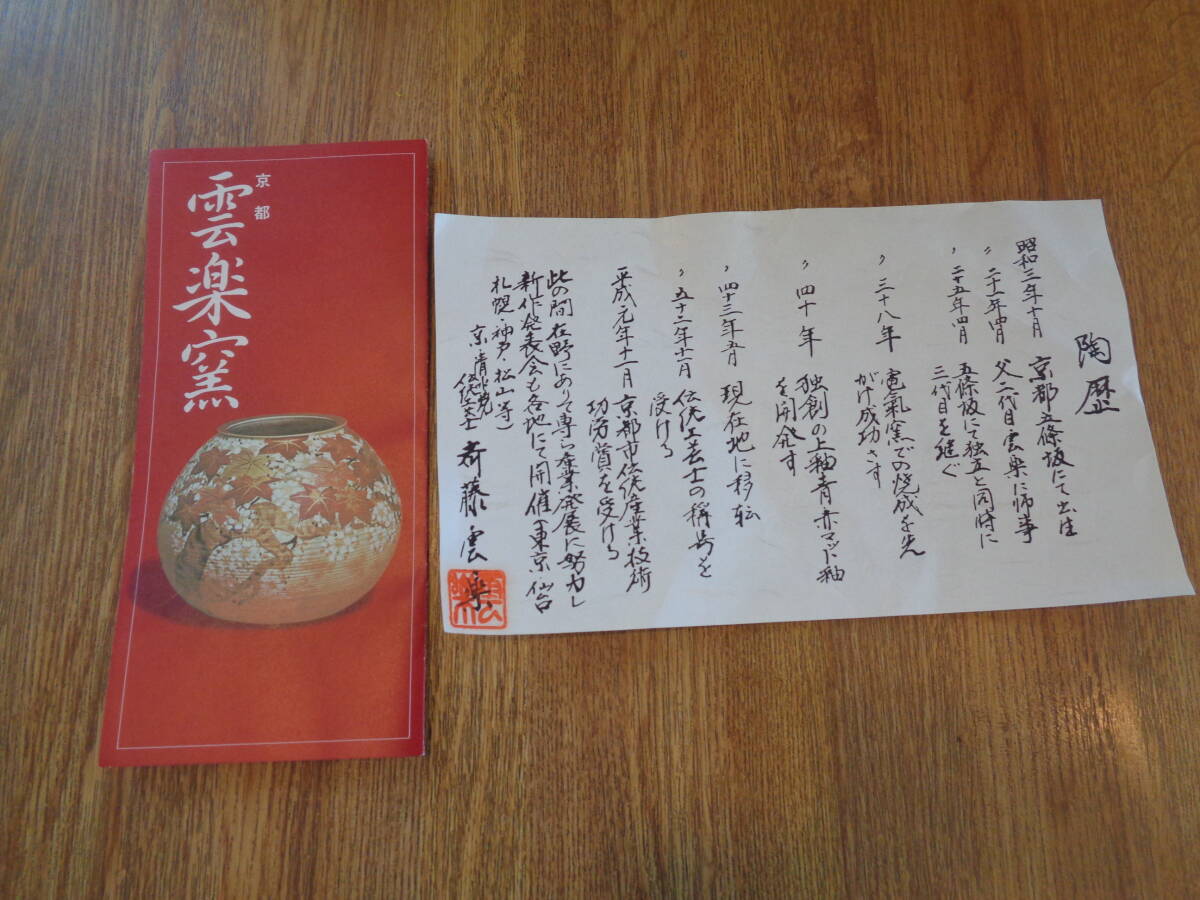 京都
雲楽窯
陶歴
昭和三年十月 京都五條坂にて出生
〃 二十一年四月 父二代目雲楽に師事
〃 二十五年四月 五條坂にて独立と同時に
三代目を継ぐ
〃 三十八年 電氣窯での焼成を先
がけ成功さす
〃 四十年 独創の上釉青赤マット釉
を開発す
〃 四十三年五月 現在地に移転
〃 五十二年十一月 伝統工芸士の称号を
受ける
平成元年十一月 京都市伝統産業技術
功労賞を受ける
此の間在野にありて専ら産業発展に努力し
新作発表会も各地にて開催(東京・仙台
札幌・神戸・松山等)
京・清水焼
伝統工芸士 斉藤雲楽